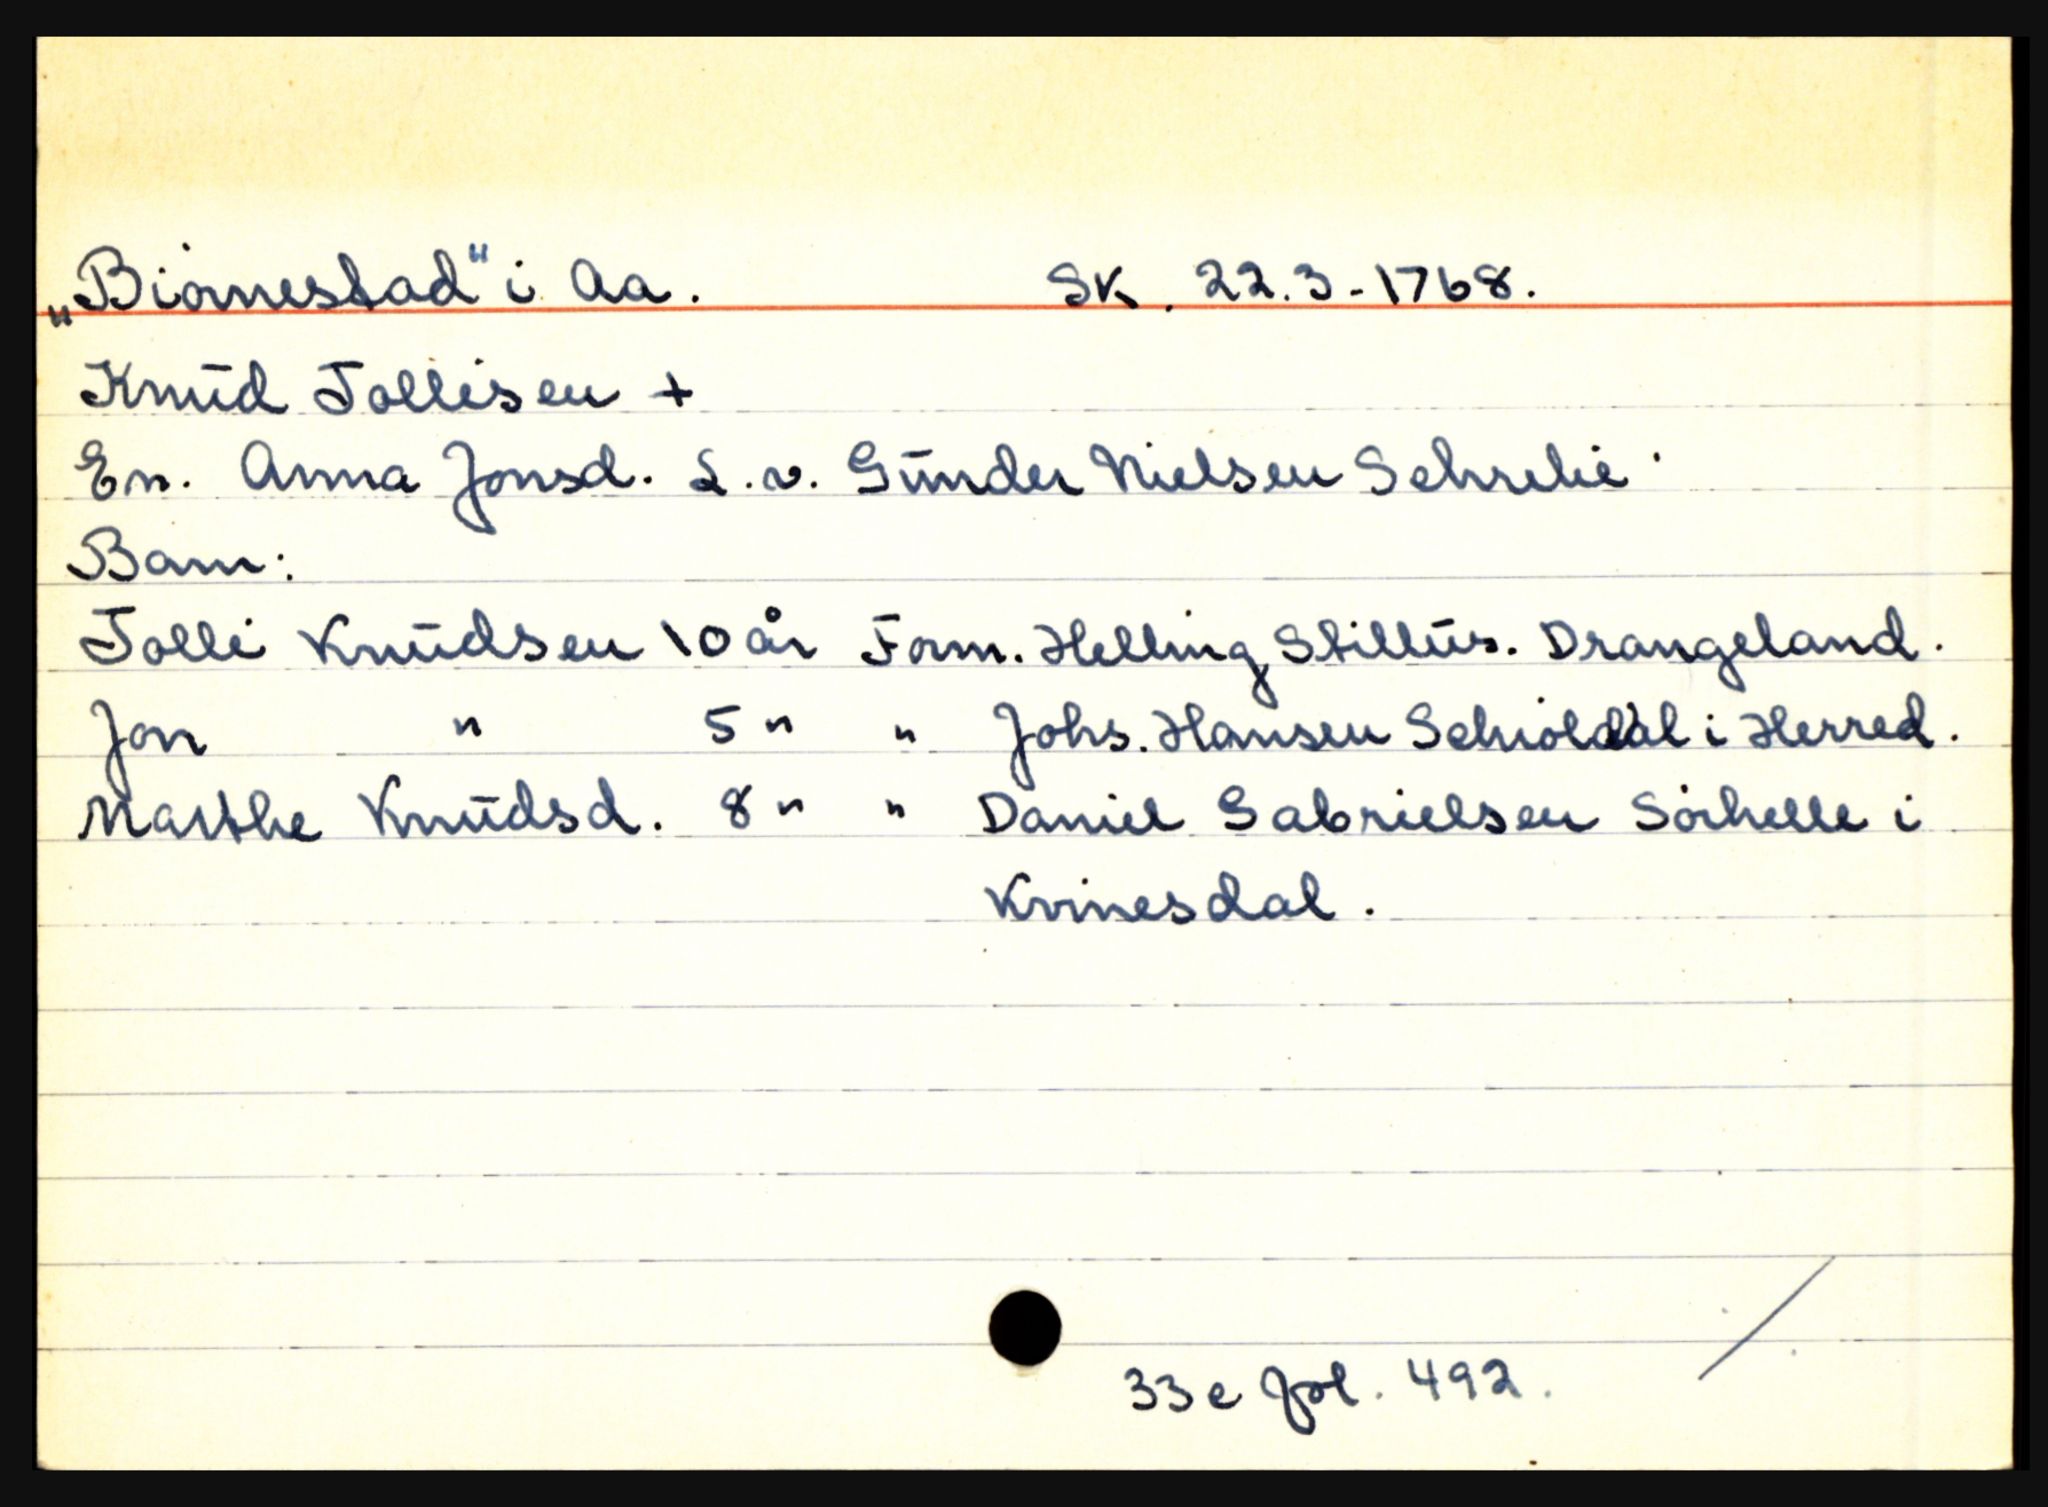 „Biørnestad“ i Aa. SK. 22.3-1768.
Knud Tollisen +
En. Anna Jonsd. L.v. Gunder Nielsen Schrelie
Barn:
Tolli Knudsen 10 år Form. Helling Stillus. Drangeland.
Jon " 5 " " Johs. Hansen Schioldal i Herred.
Marthe Knudsd. 8 " " Daniel Gabrielsen Sörhelle i
Kvinesdal.
33e fol. 492.